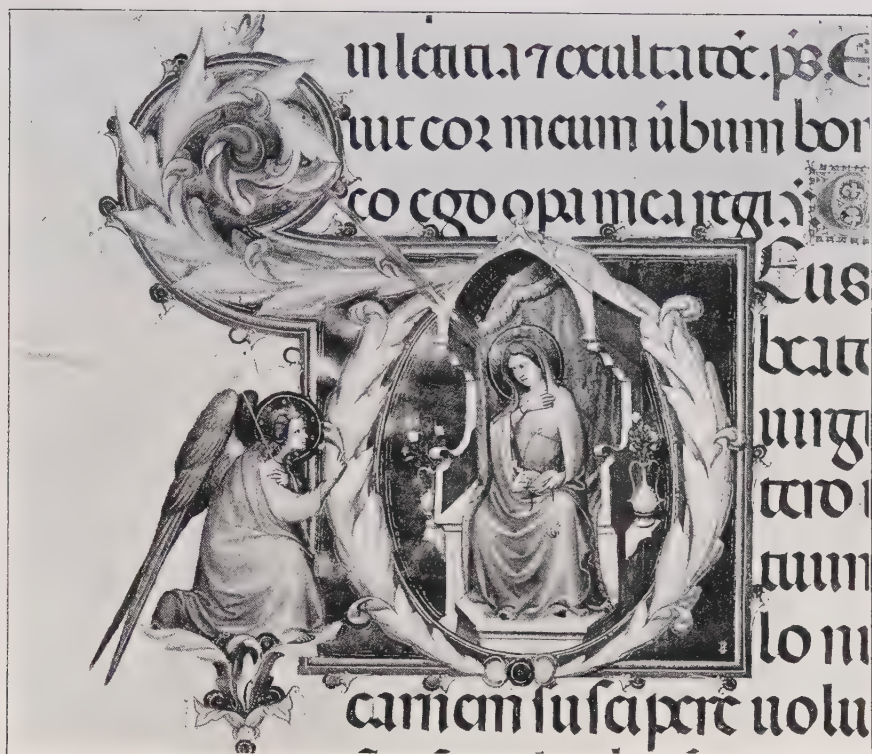 in letitia ⁊ exultatōe. p̄s. E
iut cor meum ūbum bon
co ego opa mea regi. ℣ E
Eus
beate
uirgi
tero
tuum
lo ni
carnem suscipere uolu